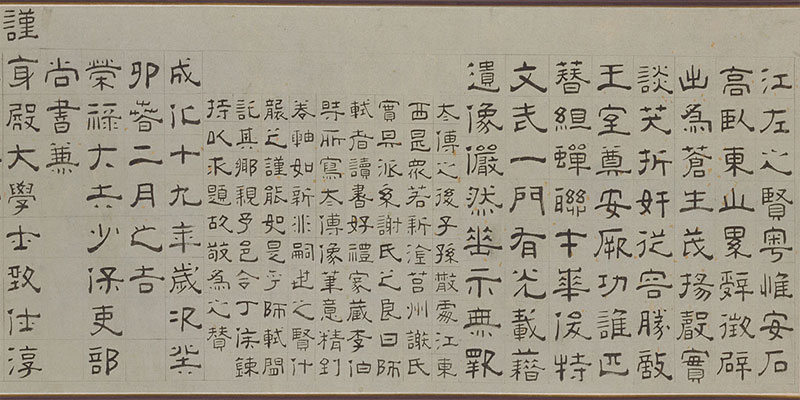 江左之賢粤惟安石
高臥東山累辭徵辟
出為蒼生茂揚聲實
談笑折奸從容勝敵
王室尊安厥功誰匹
簪組蟬聯才華俊特
文武一門有光載藉
遺像儼然垂示無斁
太傅之後子孫散處江東
西是衆若新淦莒州謝氏
實畀派系謝氏之良曰師
軾者讀書好禮家藏李伯
時所寫太傅像筆意精到
卷軸如新非嗣世之賢什
襲之謹能如是乎師軾間
託其鄉親予邑令丁侯鍊
持以求題故敬為之贊
成化十九年歲次癸
卯春二月之吉
榮祿大夫少保吏部
尚書兼
謹身殿大學士致仕淳